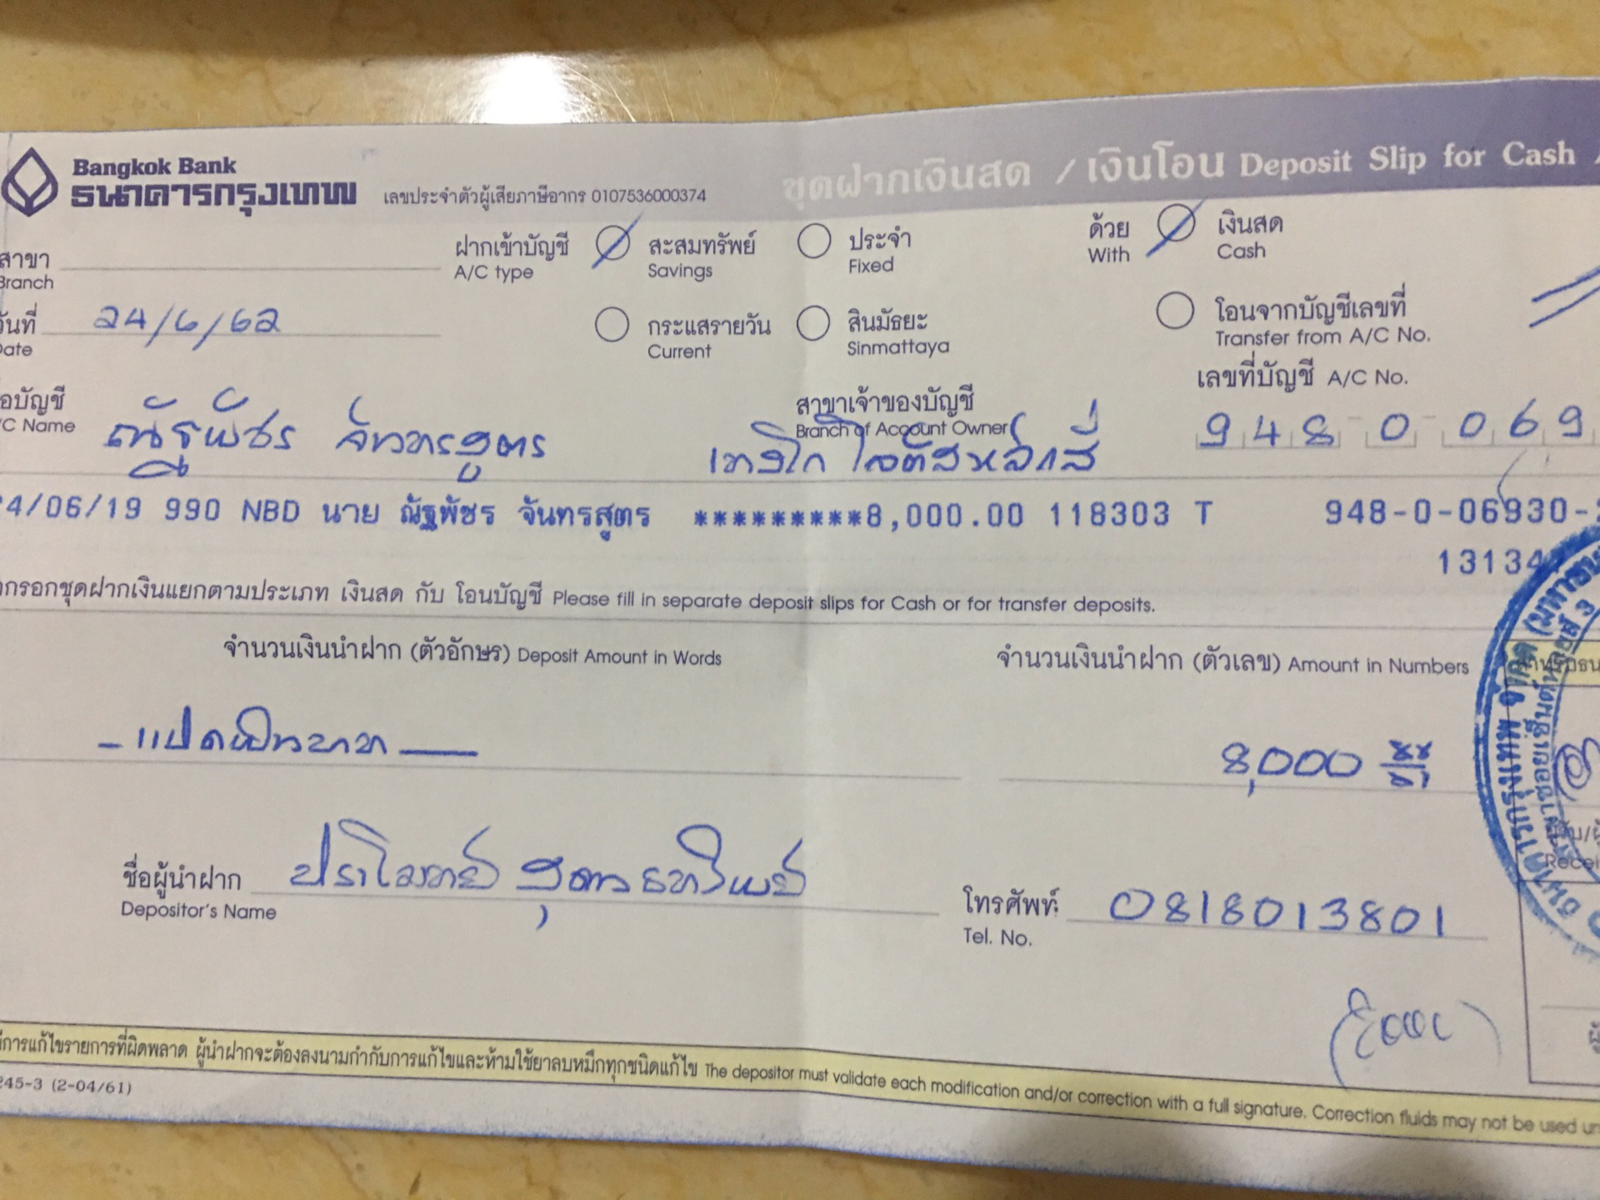 Bangkok Bank
ธนาคารกรุงเทพ
เลขประจำตัวผู้เสียภาษีอากร 0107536000374
ชุดฝากเงินสด / เงินโอน Deposit Slip for Cash
สาขา
Branch
ฝากเข้าบัญชี
A/C type
สะสมทรัพย์
Savings
ประจำ
Fixed
ด้วย
With
เงินสด
Cash
วันที่ 24/6/62
Date
กระแสรายวัน
Current
สินมัธยะ
Sinmattaya
โอนจากบัญชีเลขที่
Transfer from A/C No.
เลขที่บัญชี A/C No.
948 0 069
อบัญชี
/C Name
ณัฐพัชร จันทรสูตร
สาขาเจ้าของบัญชี
Branch of Account Owner
หลักสี่
4/06/19 990 NBD นาย ณัฐพัชร จันทรสูตร *********8,000.00 118303 T 948-0-06930-
13134
กรอกชุดฝากเงินแยกตามประเภท เงินสด กับ โอนบัญชี Please fill in separate deposit slips for Cash or for transfer deposits.
จำนวนเงินนำฝาก (ตัวอักษร) Deposit Amount in Words
จำนวนเงินนำฝาก (ตัวเลข) Amount in Numbers
- แปดพันบาท -
8,000
ชื่อผู้นำฝาก ปราโมทย์
Depositor's Name
โทรศัพท์ 0818013801
Tel. No.
การแก้ไขรายการที่ผิดพลาด ผู้นำฝากจะต้องลงนามกำกับการแก้ไขและห้ามใช้ยาลบหมึกทุกชนิดแก้ไข The depositor must validate each modification and/or correction with a full signature. Correction fluids may not be used
245-3 (2-04/61)